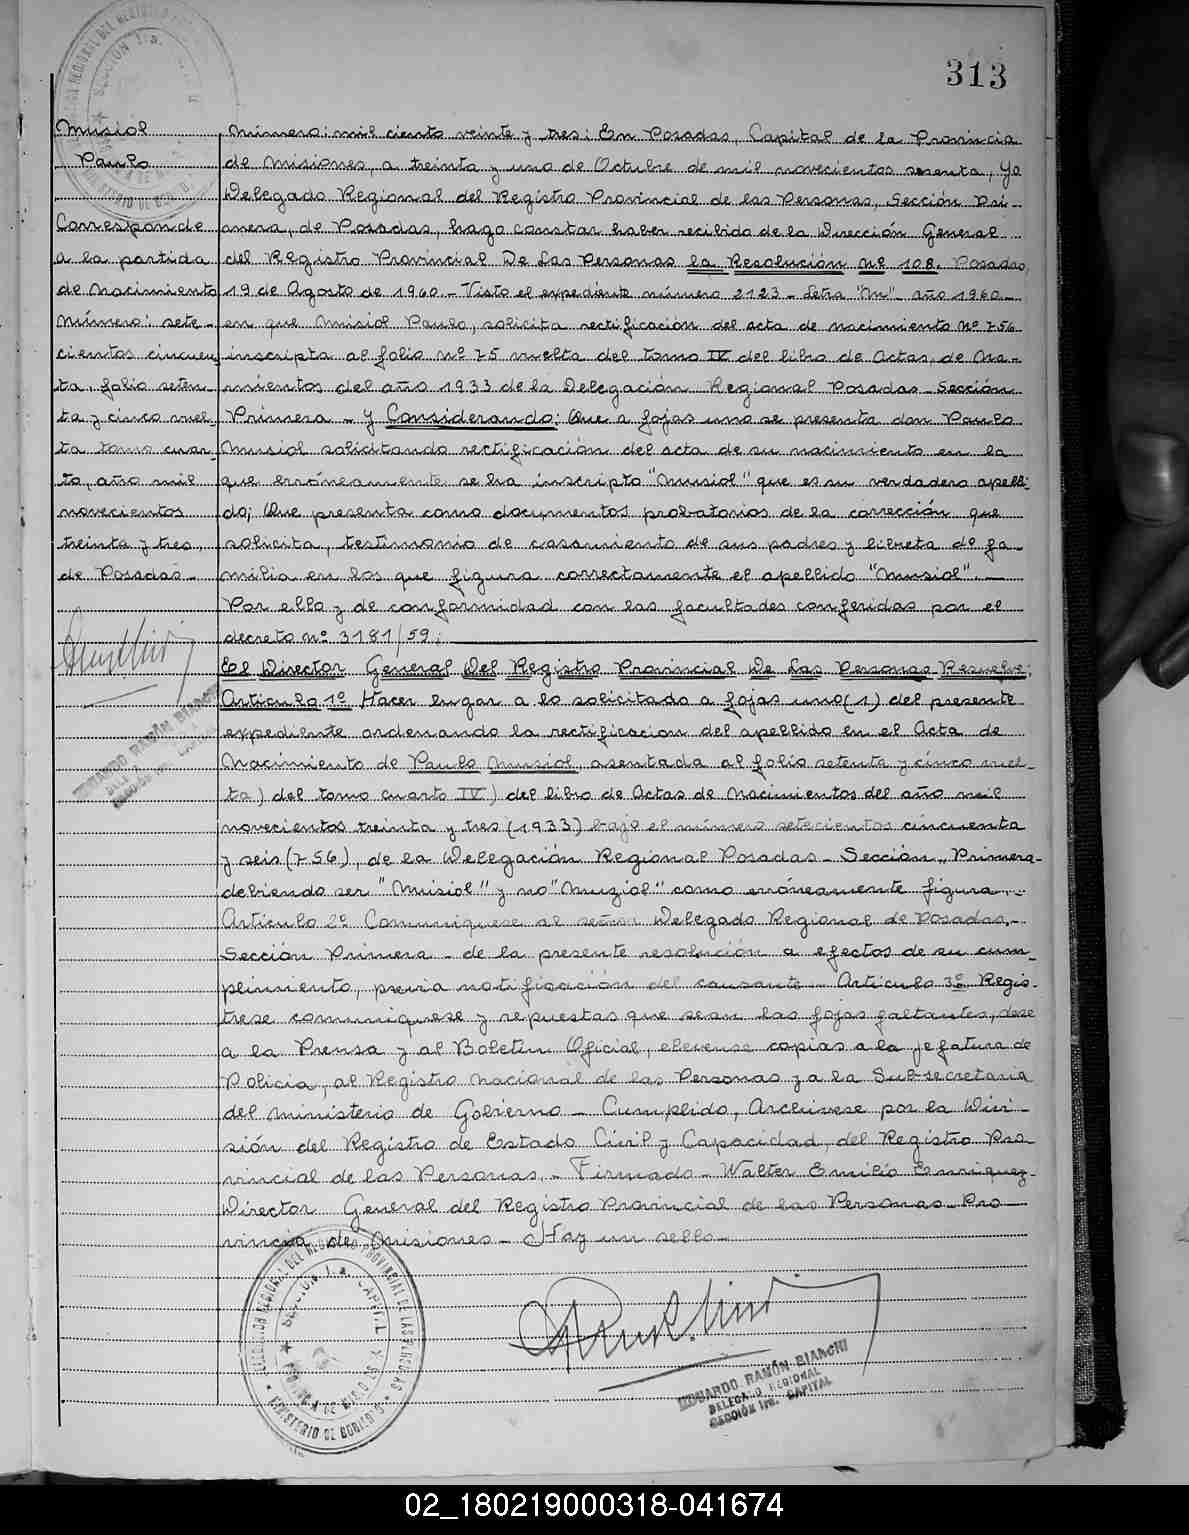 313
Musiol
Paulo
Corresponde
a la partida
de nacimiento
número: sete-
cientos cincuen-
ta, folio seten-
ta y cinco vuel-
ta tomo cuar-
to, año mil
novecientos
treinta y tres,
de Posadas-
EDUARDO RAMÓN BIANCHI
Número: mil ciento veinte y tres: En Posadas, Capital de la Provincia
de Misiones, a treinta y uno de Octubre de mil novecientos sesenta, Yo
Delegado Regional del Registro Provincial de las Personas, Sección Pri-
mera, de Posadas, hago constar haber recibido de la Dirección General
del Registro Provincial De Las Personas la Resolución Nº 108. Posadas,
19 de Agosto de 1960.- Visto el expediente número 2123 - Letra "M" - año 1960.-
en que Musiol Paulo, solicita rectificación del acta de nacimiento Nº 756
inscripta al folio nº 75 vuelta del tomo IV del libro de Actas, de Na-
mientos del año 1933 de la Delegación Regional Posadas - Sección
Primera - Y Considerando: Que a fojas uno se presenta don Paulo
Musiol solicitando rectificación del acta de su nacimiento en la
que erróneamente se ha inscripto "Musiol" que es su verdadero apelli-
do; Que presenta como documentos probatorios de la corrección que
solicita, testimonio de casamiento de sus padres y libreta de fa-
milia en los que figura correctamente el apellido "Musiol". -
Por ello y de conformidad con las facultades conferidas por el
decreto nº 3181/59;
El Director General Del Registro Provincial De Las Personas Resuelve:
Artículo 1º Hacer lugar a lo solicitado a fojas uno (1) del presente
expediente ordenando la rectificacion del apellido en el Acta de
Nacimiento de Paulo Musiol, asentada al folio setenta y cinco vuel-
ta) del tomo cuarto IV) del libro de Actas de Nacimientos del año mil
novecientos treinta y tres (1933) bajo el número setecientos cincuenta
y seis (756), de la Delegación Regional Posadas - Sección, Primera-
debiendo ser "Musiol" y no "Muziol" como erróneamente figura.-
Artículo 2º Comuníquese al señor Delegado Regional de Posadas.-
Sección Primera - de la presente resolución a efectos de su cum-
plimiento, previa notificación del causante - Artículo 3º Regis-
trese comuniquese y repuestas que sean las fojas faltantes, dese
a la Prensa y al Boletin Oficial, elevense copias a la Jefatura de
Policia, al Registro Nacional de las Personas y a la Sub-secretaria
del Ministerio de Gobierno - Cumplido, Archivese por la Divi-
sión del Registro de Estado Civil y Capacidad, del Registro Pro-
vincial de las Personas. - Firmado - Walter Emilio Enriquez-
Director General del Registro Provincial de las Personas - Pro-
vincia de Misiones - Hay un sello -
DELEGACION REGIONAL DEL REGISTRO PROVINCIAL DE LAS PERSONAS
SECCION 1a. CAPITAL
PROVINCIA DE MISIONES
MINISTERIO DE GOBIERNO
EDUARDO RAMÓN BIANCHI
DELEGADO REGIONAL
SECCIÓN 1ra. CAPITAL
02_180219000318-041674